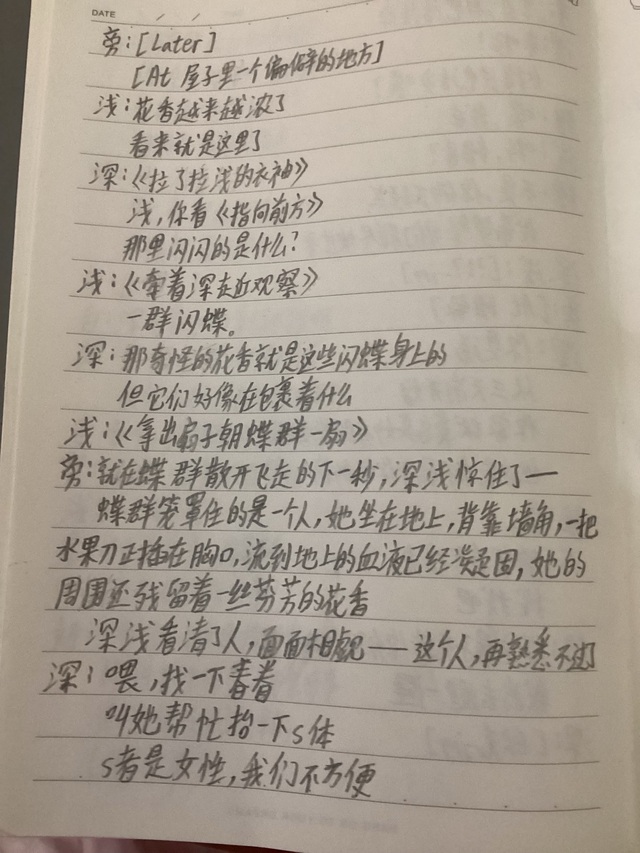 DATE / /
旁:[Later]
[At 屋子里一个偏僻的地方]
浅:花香越来越浓了
看来就是这里了
深:《拉了拉浅的衣袖》
浅,你看《指向前方》
那里闪闪的是什么?
浅:《牵着深走近观察》
一群闪蝶。
深:那奇怪的花香就是这些闪蝶身上的
但它们好像在包裹着什么
浅:《拿出扇子朝蝶群一扇》
旁:就在蝶群散开飞走的下一秒,深浅惊住了—
蝶群笼罩住的是一个人,她坐在地上,背靠墙角,一把
水果刀正插在胸口,流到地上的血液已经凝固,她的
周围还残留着一丝芬芳的花香
深浅看清了人,面面相觑——这个人,再熟悉不过
深:喂,找一下春眷
叫她帮忙抬一下s体
s者是女性,我们不方便